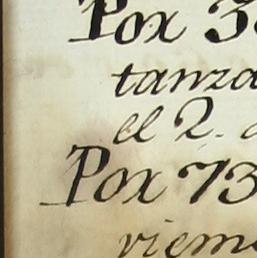 Pox 3
tanza
el 2.
Pox 73
viem